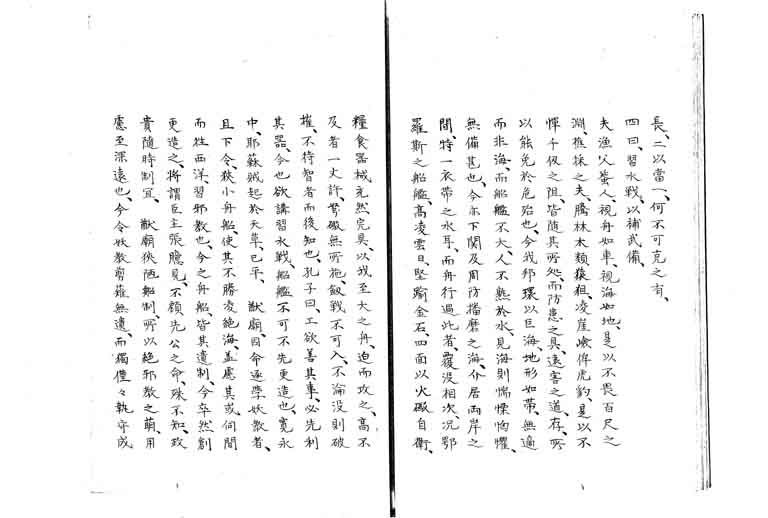 長、二以當一、何不可克之有、
四曰、習水戰、以補武備、
夫漁父蜑人、視舟如車、視海如地、是以不畏百尺之
淵、樵採之夫、騰林木類猿狙、凌崖嶮侔虎豹、是以不
憚千仭之阻、皆隨其所処而防患之具、遠害之道存、所
以能免於危殆也、今我邦環以巨海、地形如帶、無適
而非海、而船艦不大、人不熟於水、見海則惴慄怐懼、
無備甚也、今赤下関及周防播磨之海、介居両岸之
間、特一衣帶之水耳、而舟行過此者、覆没相次、況鄂
羅斯之船艦、高凌雲日、堅踰金石、四面以火礟自衛、
糧食器械充然完具、以我至大之舟、迫而攻之、高不
及者一丈許、弩礟無所施、劔戰不可入、不淪没則破
摧、不待智者而後知也、孔子曰、工欲善其事、必先利
其器、今也欲講習水戰、船艦不可不先更造也、寛永
中、耶蘇賊起於天草、已平、 猷廟因命逐學妖教者、
且下令狭小舟船、使其不勝凌絶海、盖慮其或伺間
而往西洋習邪教也、今之舟船、皆其遺制、今卒然創
更造之、將謂臣主張臆見、不顧先公之命、殊不知、政
貴隨時制宜、 猷廟狭陋船制、所以絶邪教之萌、用
慮至深遠也、今令妖教剪薙無遺、而獨僅々執守成